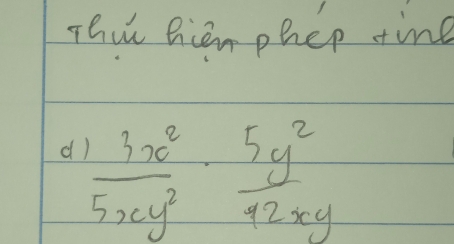 Thực hiện phép tính
d) 3x²/5xy² . 5y²/12xy